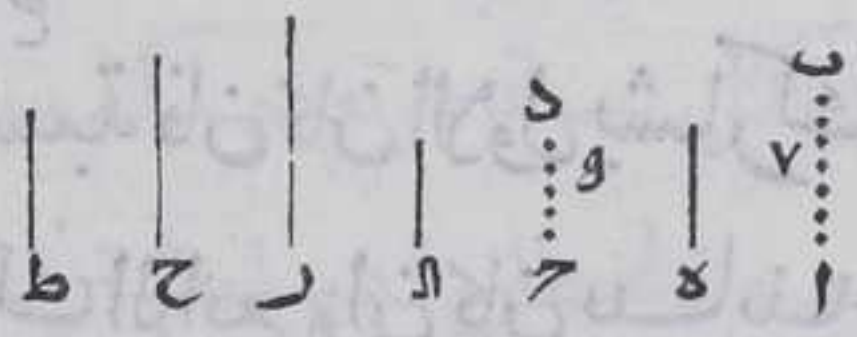 ب د
٧
ا ه ح ر ح ط